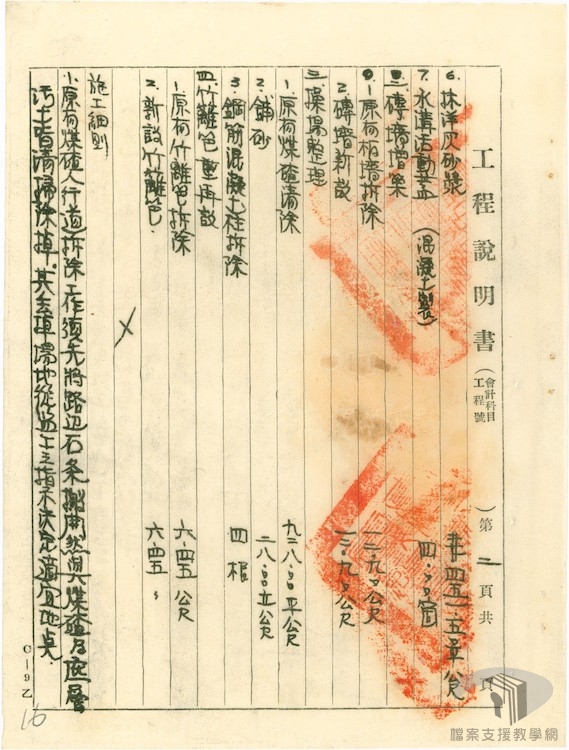 工程說明書（會計科目 工程號 ）第二頁共 頁
6. 抹洋灰砂漿
7. 水溝活動蓋（混凝土製） 四.〇〇
二、磚墻增築
1. 原有柏墻拆除 一三.九〇公尺
2. 磚墻新設 一三.九〇公尺
三、操場整理
1. 原有煤碴清除 九二八.〇〇平公尺
2. 鋪砂 二八.〇〇立公尺
3. 鋼筋混凝土柱拆除 四根
四、竹籬笆重再設
1. 原有竹籬笆拆除 六.四五公尺
2. 新設竹籬笆 六.四五
施工細則
1. 原有煤碴人行道拆除工作須先將路边石条 然 煤碴及底層
污土皆清掃除掉．其 場地從 工之指示決定適宜地点
C—9乙
16
檔案支援教學網